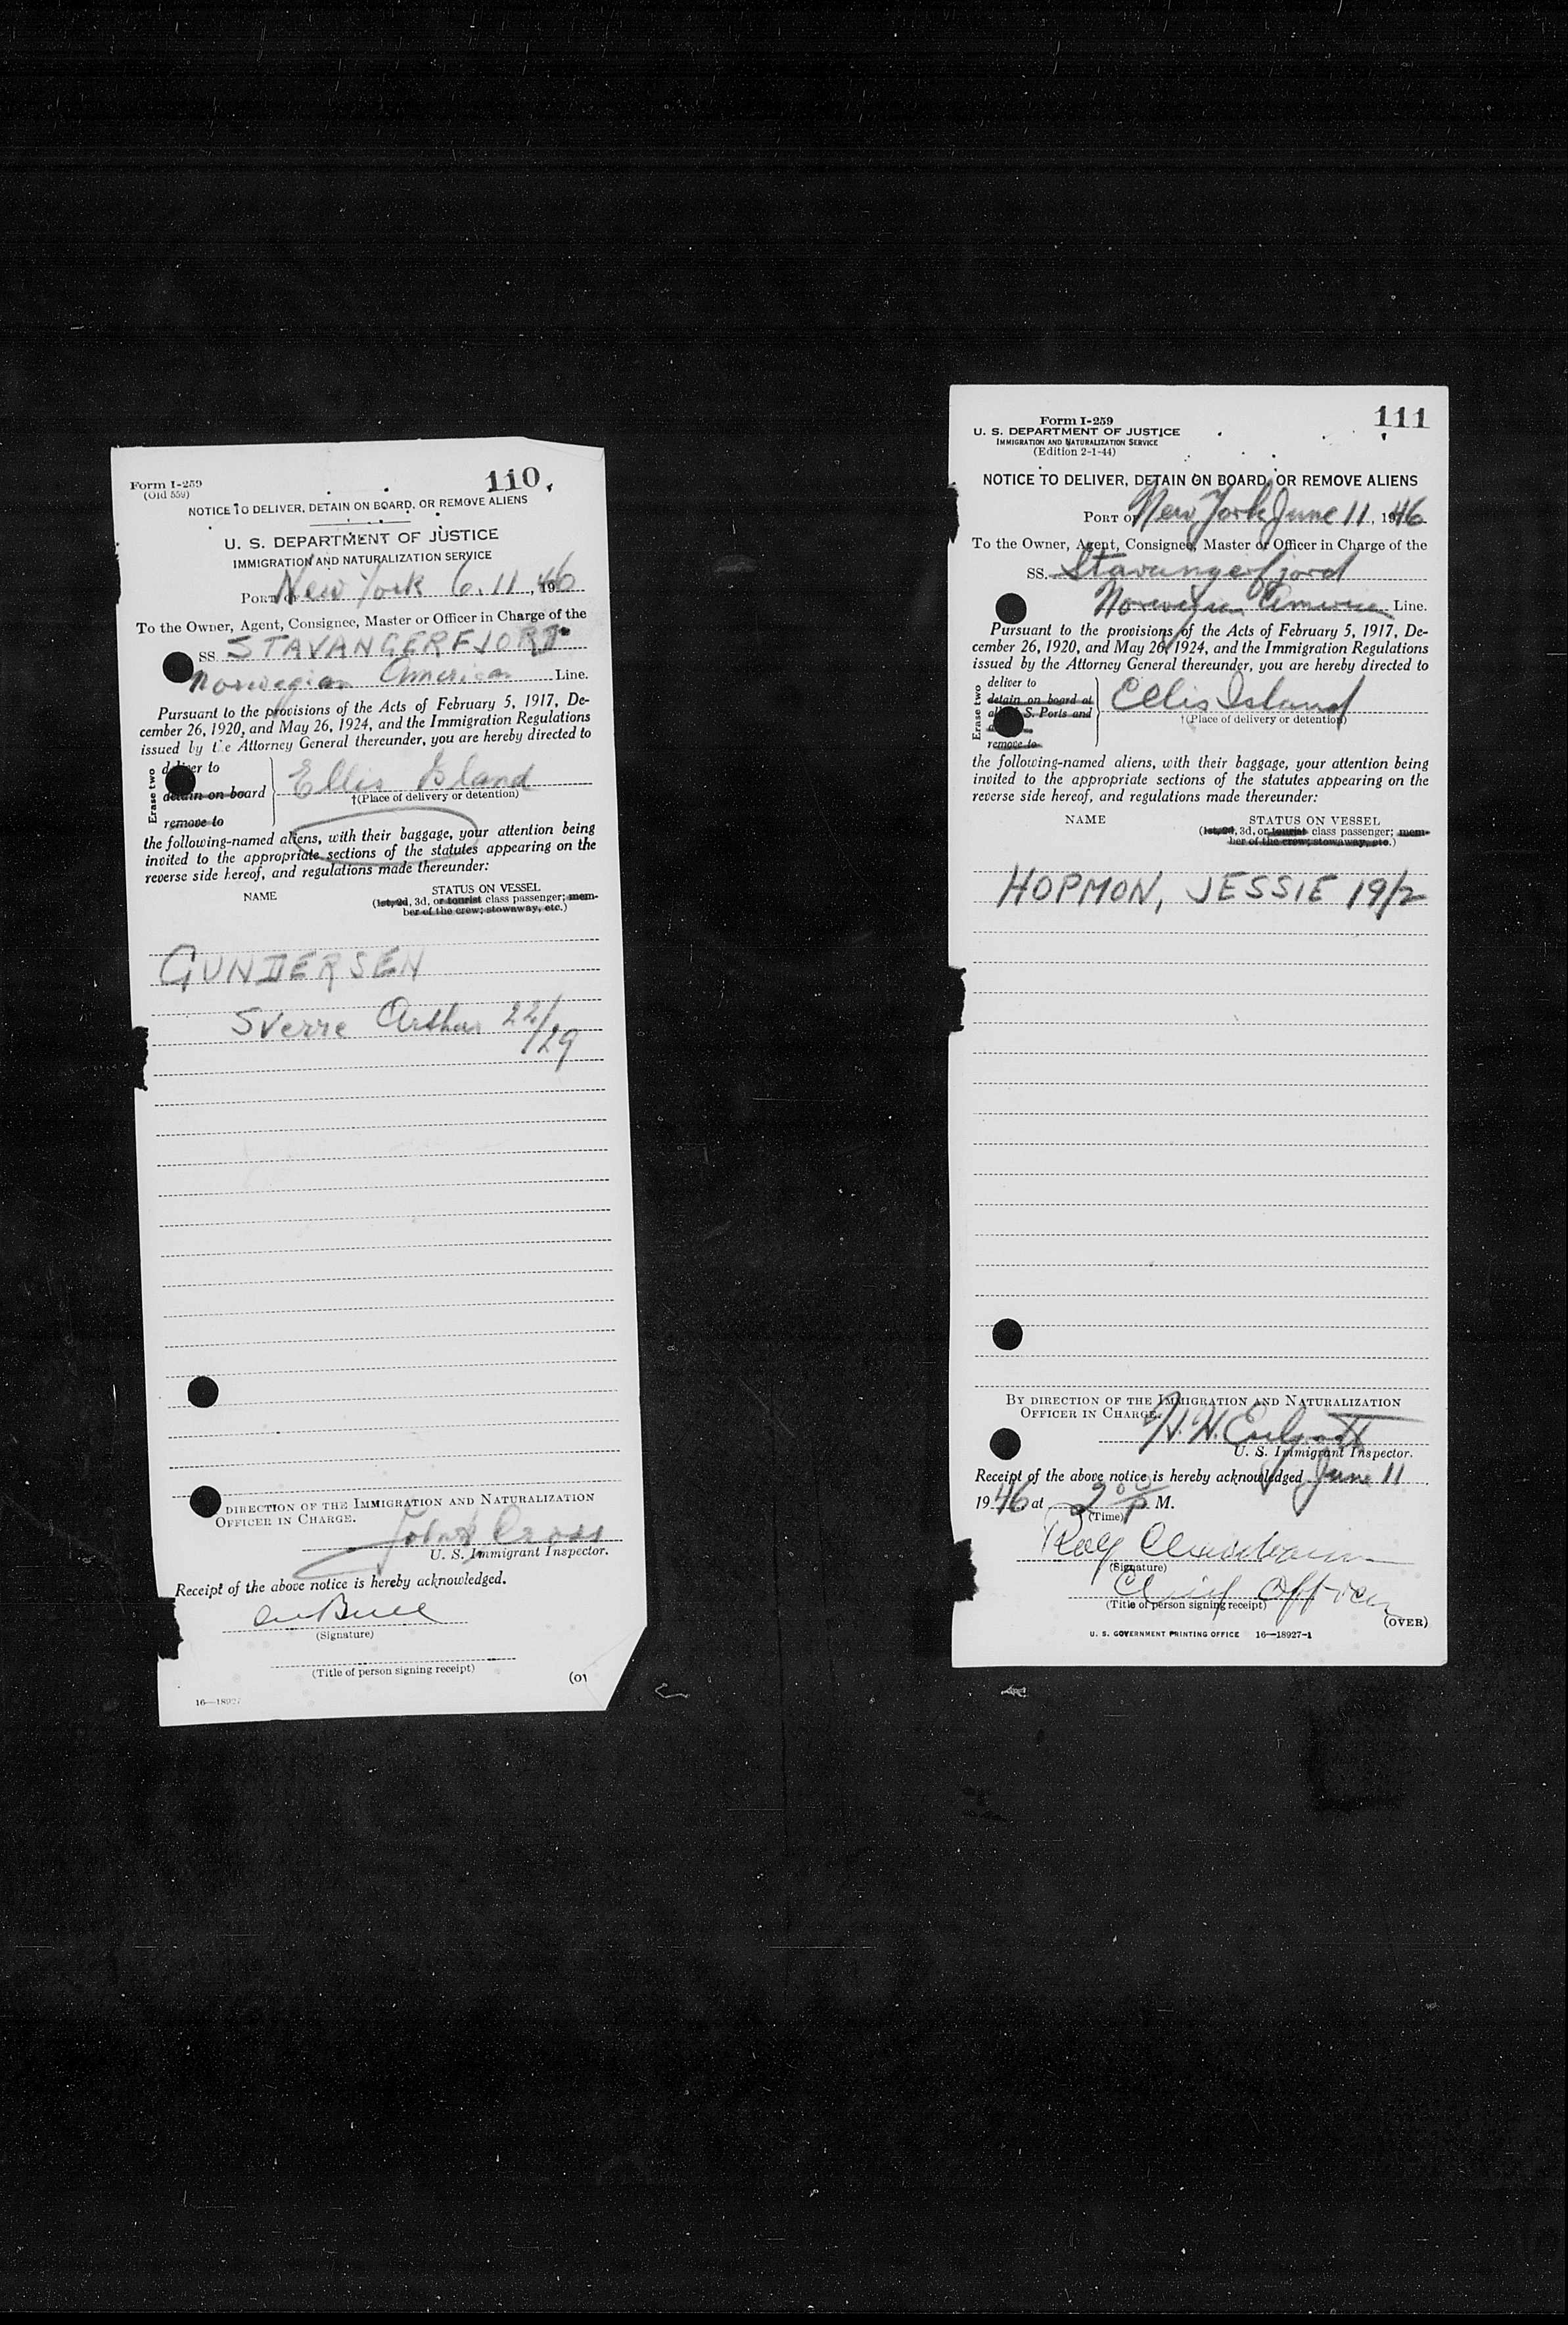 Form I-259
(Old 559)
110
NOTICE TO DELIVER, DETAIN ON BOARD, OR REMOVE ALIENS
U. S. DEPARTMENT OF JUSTICE
IMMIGRATION AND NATURALIZATION SERVICE
PORT OF New York 6.11, 1946
To the Owner, Agent, Consignee, Master or Officer in Charge of the
SS. STAVANGERFJORD
Norwegian American Line.
Pursuant to the provisions of the Acts of February 5, 1917, De-
cember 26, 1920, and May 26, 1924, and the Immigration Regulations
issued by the Attorney General thereunder, you are hereby directed to
Erase two
deliver to
detain on board
remove to
Ellis Island
†(Place of delivery or detention)
the following-named aliens, with their baggage, your attention being
invited to the appropriate sections of the statutes appearing on the
reverse side hereof, and regulations made thereunder:
NAME
STATUS ON VESSEL
(1st, 2d, 3d, or tourist class passenger; mem-
ber of the crew; stowaway, etc.)
GUNDERSEN
Sverre Arthur 22/29
DIRECTION OF THE IMMIGRATION AND NATURALIZATION
OFFICER IN CHARGE.
Cross
U. S. Immigrant Inspector.
Receipt of the above notice is hereby acknowledged.
(Signature)
(Title of person signing receipt)
(O
16—18927
Form I-259
U. S. DEPARTMENT OF JUSTICE
IMMIGRATION AND NATURALIZATION SERVICE
(Edition 2-1-44)
111
NOTICE TO DELIVER, DETAIN ON BOARD, OR REMOVE ALIENS
PORT OF New York June 11, 1946
To the Owner, Agent, Consignee, Master or Officer in Charge of the
SS. Stavangerfjord
Norwegian Line.
Pursuant to the provisions of the Acts of February 5, 1917, De-
cember 26, 1920, and May 26, 1924, and the Immigration Regulations
issued by the Attorney General thereunder, you are hereby directed to
Erase two
deliver to
detain on board at
all U. S. Ports and
remove to
Ellis Island
†(Place of delivery or detention)
the following-named aliens, with their baggage, your attention being
invited to the appropriate sections of the statutes appearing on the
reverse side hereof, and regulations made thereunder:
NAME
STATUS ON VESSEL
(1st, 2d, 3d, or tourist class passenger; mem-
ber of the crew; stowaway, etc.)
HOPMON, JESSIE 19/2
BY DIRECTION OF THE IMMIGRATION AND NATURALIZATION
OFFICER IN CHARGE.
U. S. Immigrant Inspector.
Receipt of the above notice is hereby acknowledged June 11,
1946 at 2 00 P M.
(Time)
(Signature)
Chief Officer
(Title of person signing receipt)
(OVER)
U. S. GOVERNMENT PRINTING OFFICE 16—18927-1